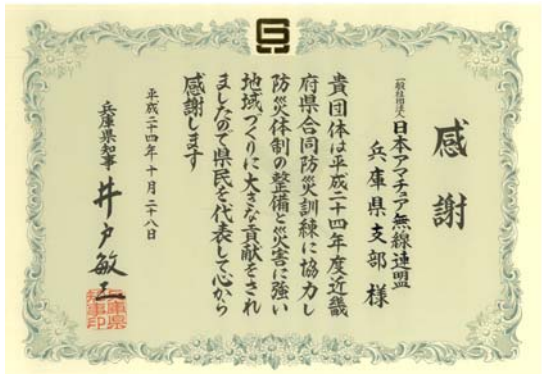 感謝
一般社団法人日本アマチュア無線連盟
兵庫県支部 様
貴団体は平成二十四年度近畿
府県合同防災訓練に協力し
防災体制の整備と災害に強い
地域づくりに大きな貢献をされ
ましたので県民を代表して心から
感謝します
平成二十四年十月二十八日
兵庫県知事 井戸敏三
兵庫県
知事印